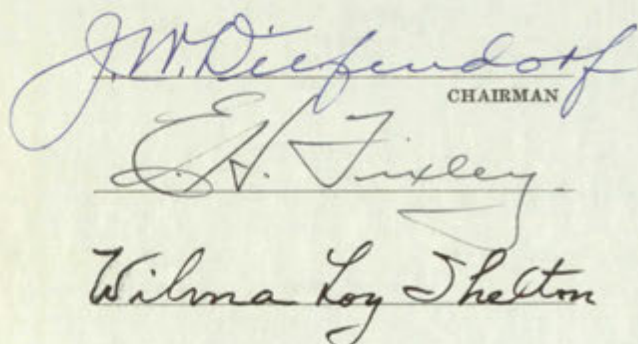 J.W. Diefendorf
CHAIRMAN
E.H. Fixley.
Wilma Loy Shelton